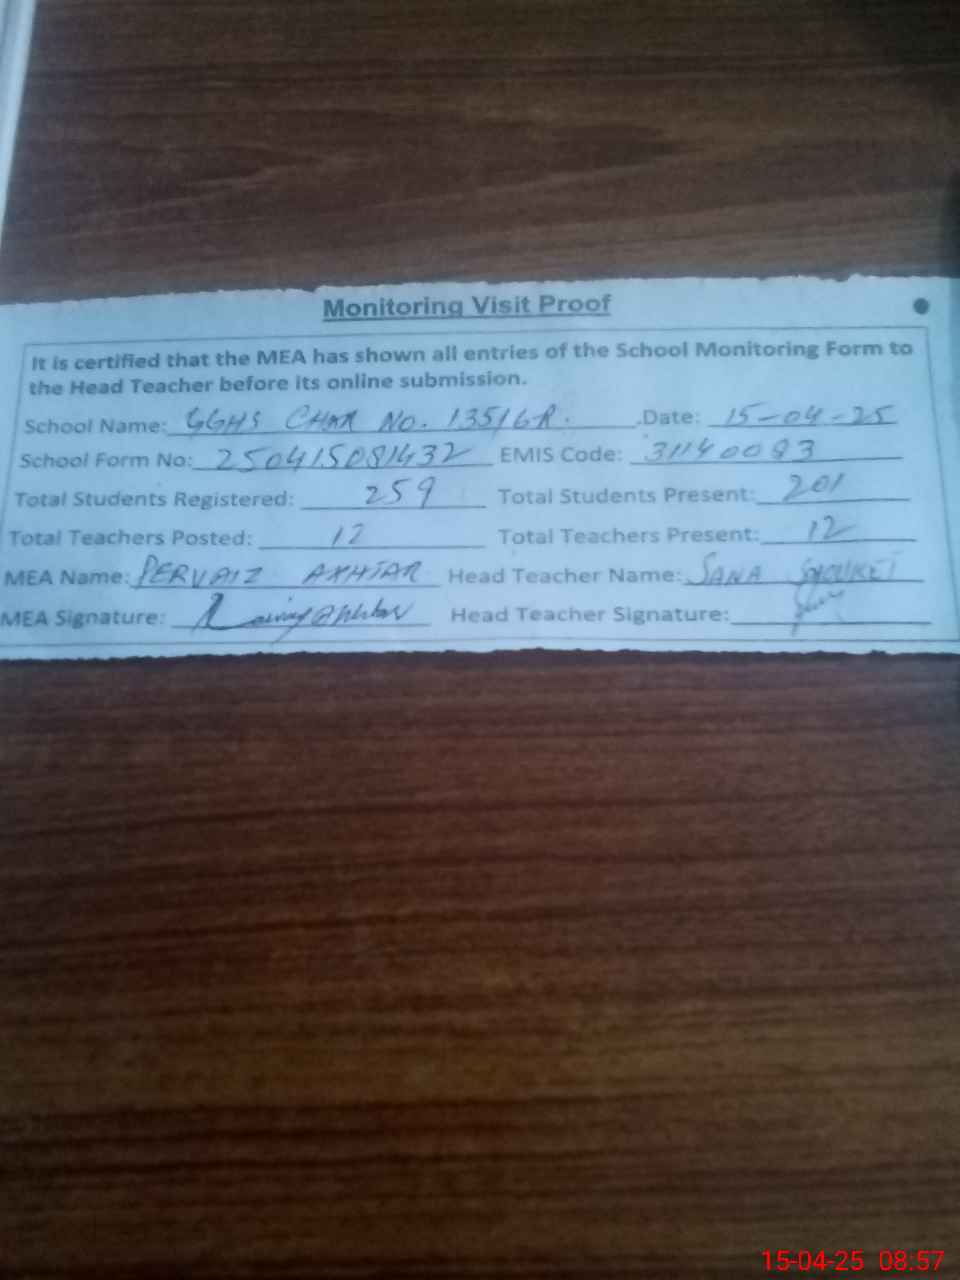 Monitoring Visit Proof
It is certified that the MEA has shown all entries of the School Monitoring Form to
the Head Teacher before its online submission.
School Name: GGHS CHAK No. 135/6R. Date: 15-04-25
School Form No: 250415081432 EMIS Code: 31140083
Total Students Registered: 259 Total Students Present: 201
Total Teachers Posted: 12 Total Teachers Present: 12
MEA Name: PERVAIZ AKHTAR Head Teacher Name: SANA SHOUKET
MEA Signature: Head Teacher Signature:
15-04-25 08:57